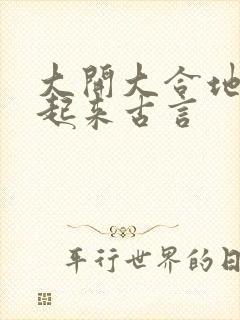 大開大合地
起来古言
平行世界的日